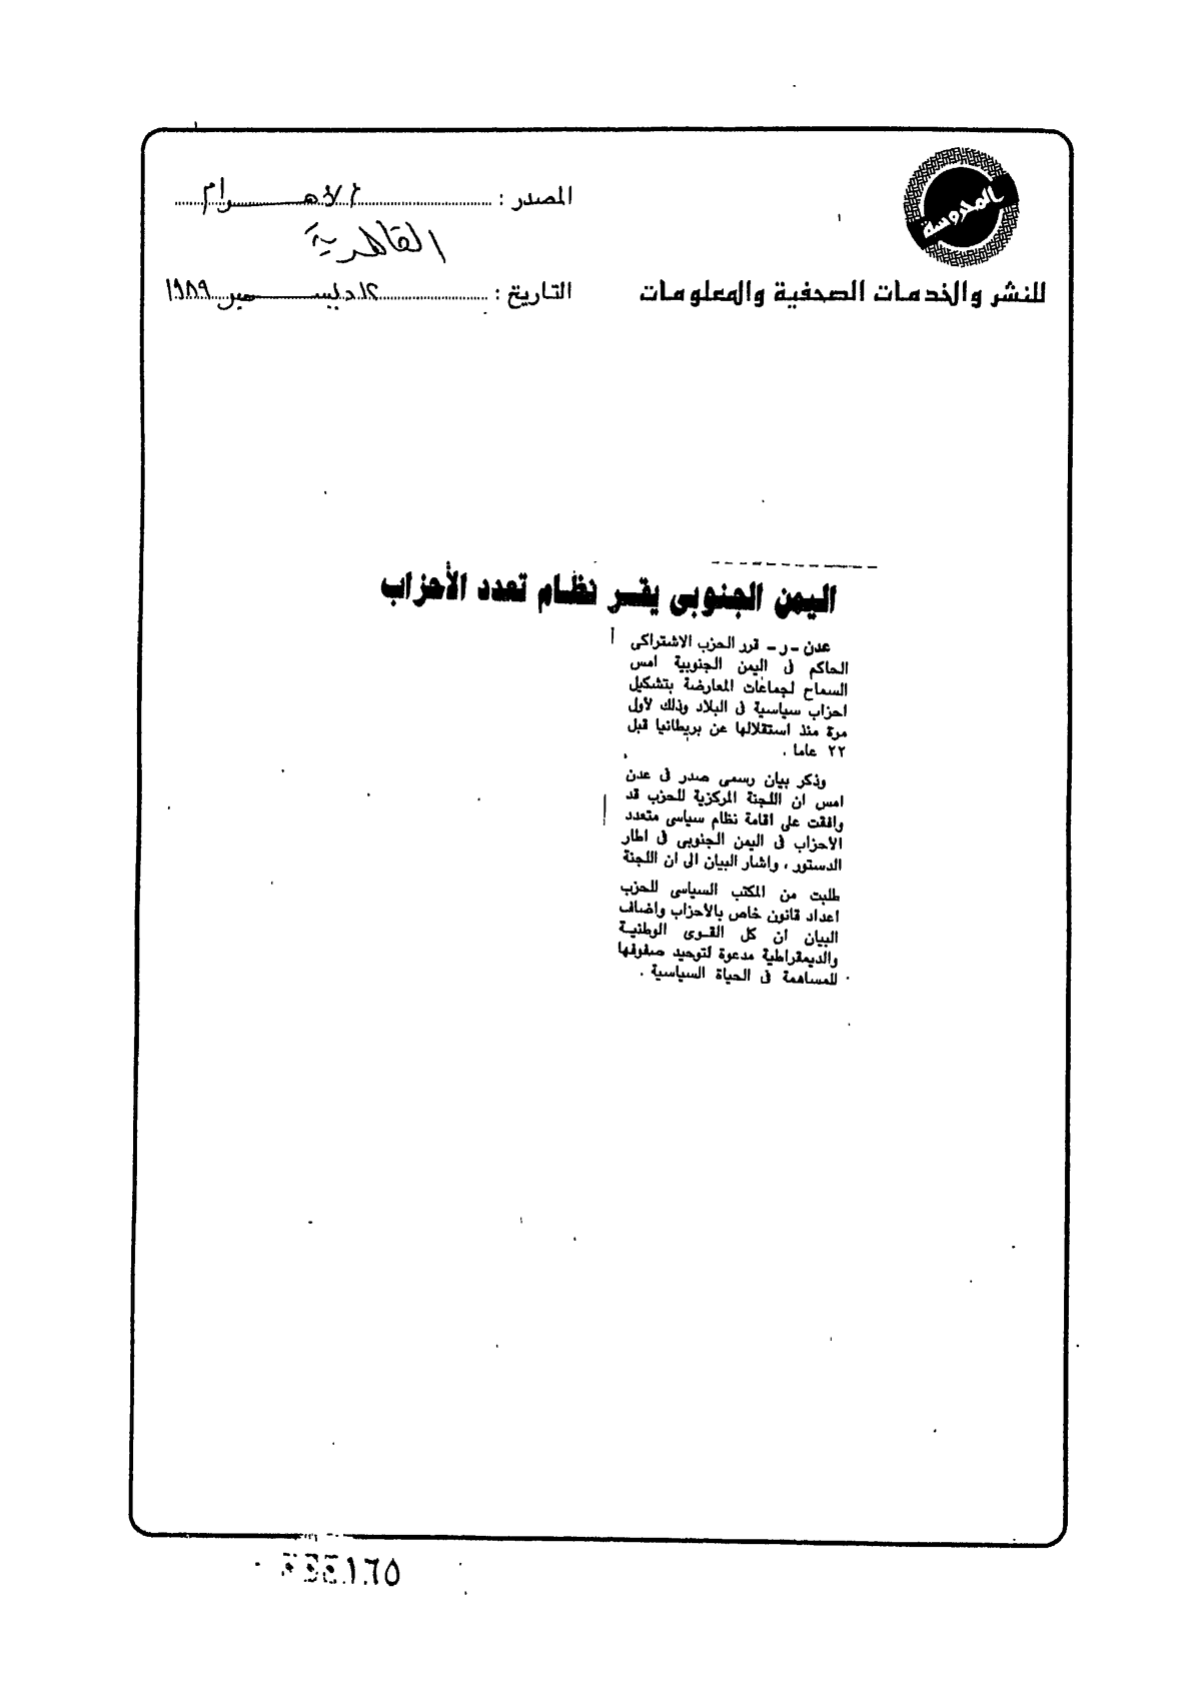 المحروسة
للنشر والخدمات الصحفية والمعلومات
المصدر : الأهرام
القاهرية
التاريخ : ١٢ ديسمبر ١٩٨٩
اليمن الجنوبى يقر نظام تعدد الأحزاب
عدن - ر - قرر الحزب الاشتراكى
الحاكم فى اليمن الجنوبية امس
السماح لجماعات المعارضة بتشكيل
احزاب سياسية فى البلاد وذلك لأول
مرة منذ استقلالها عن بريطانيا قبل
٢٢ عاما .
وذكر بيان رسمى صدر فى عدن
امس ان اللجنة المركزية للحزب قد
وافقت على اقامة نظام سياسى متعدد
الأحزاب فى اليمن الجنوبى فى اطار
الدستور ، واشار البيان الى ان اللجنة
طلبت من المكتب السياسى للحزب
اعداد قانون خاص بالأحزاب واضاف
البيان ان كل القوى الوطنية
والديمقراطية مدعوة لتوحيد صفوفها
للمساهمة فى الحياة السياسية .